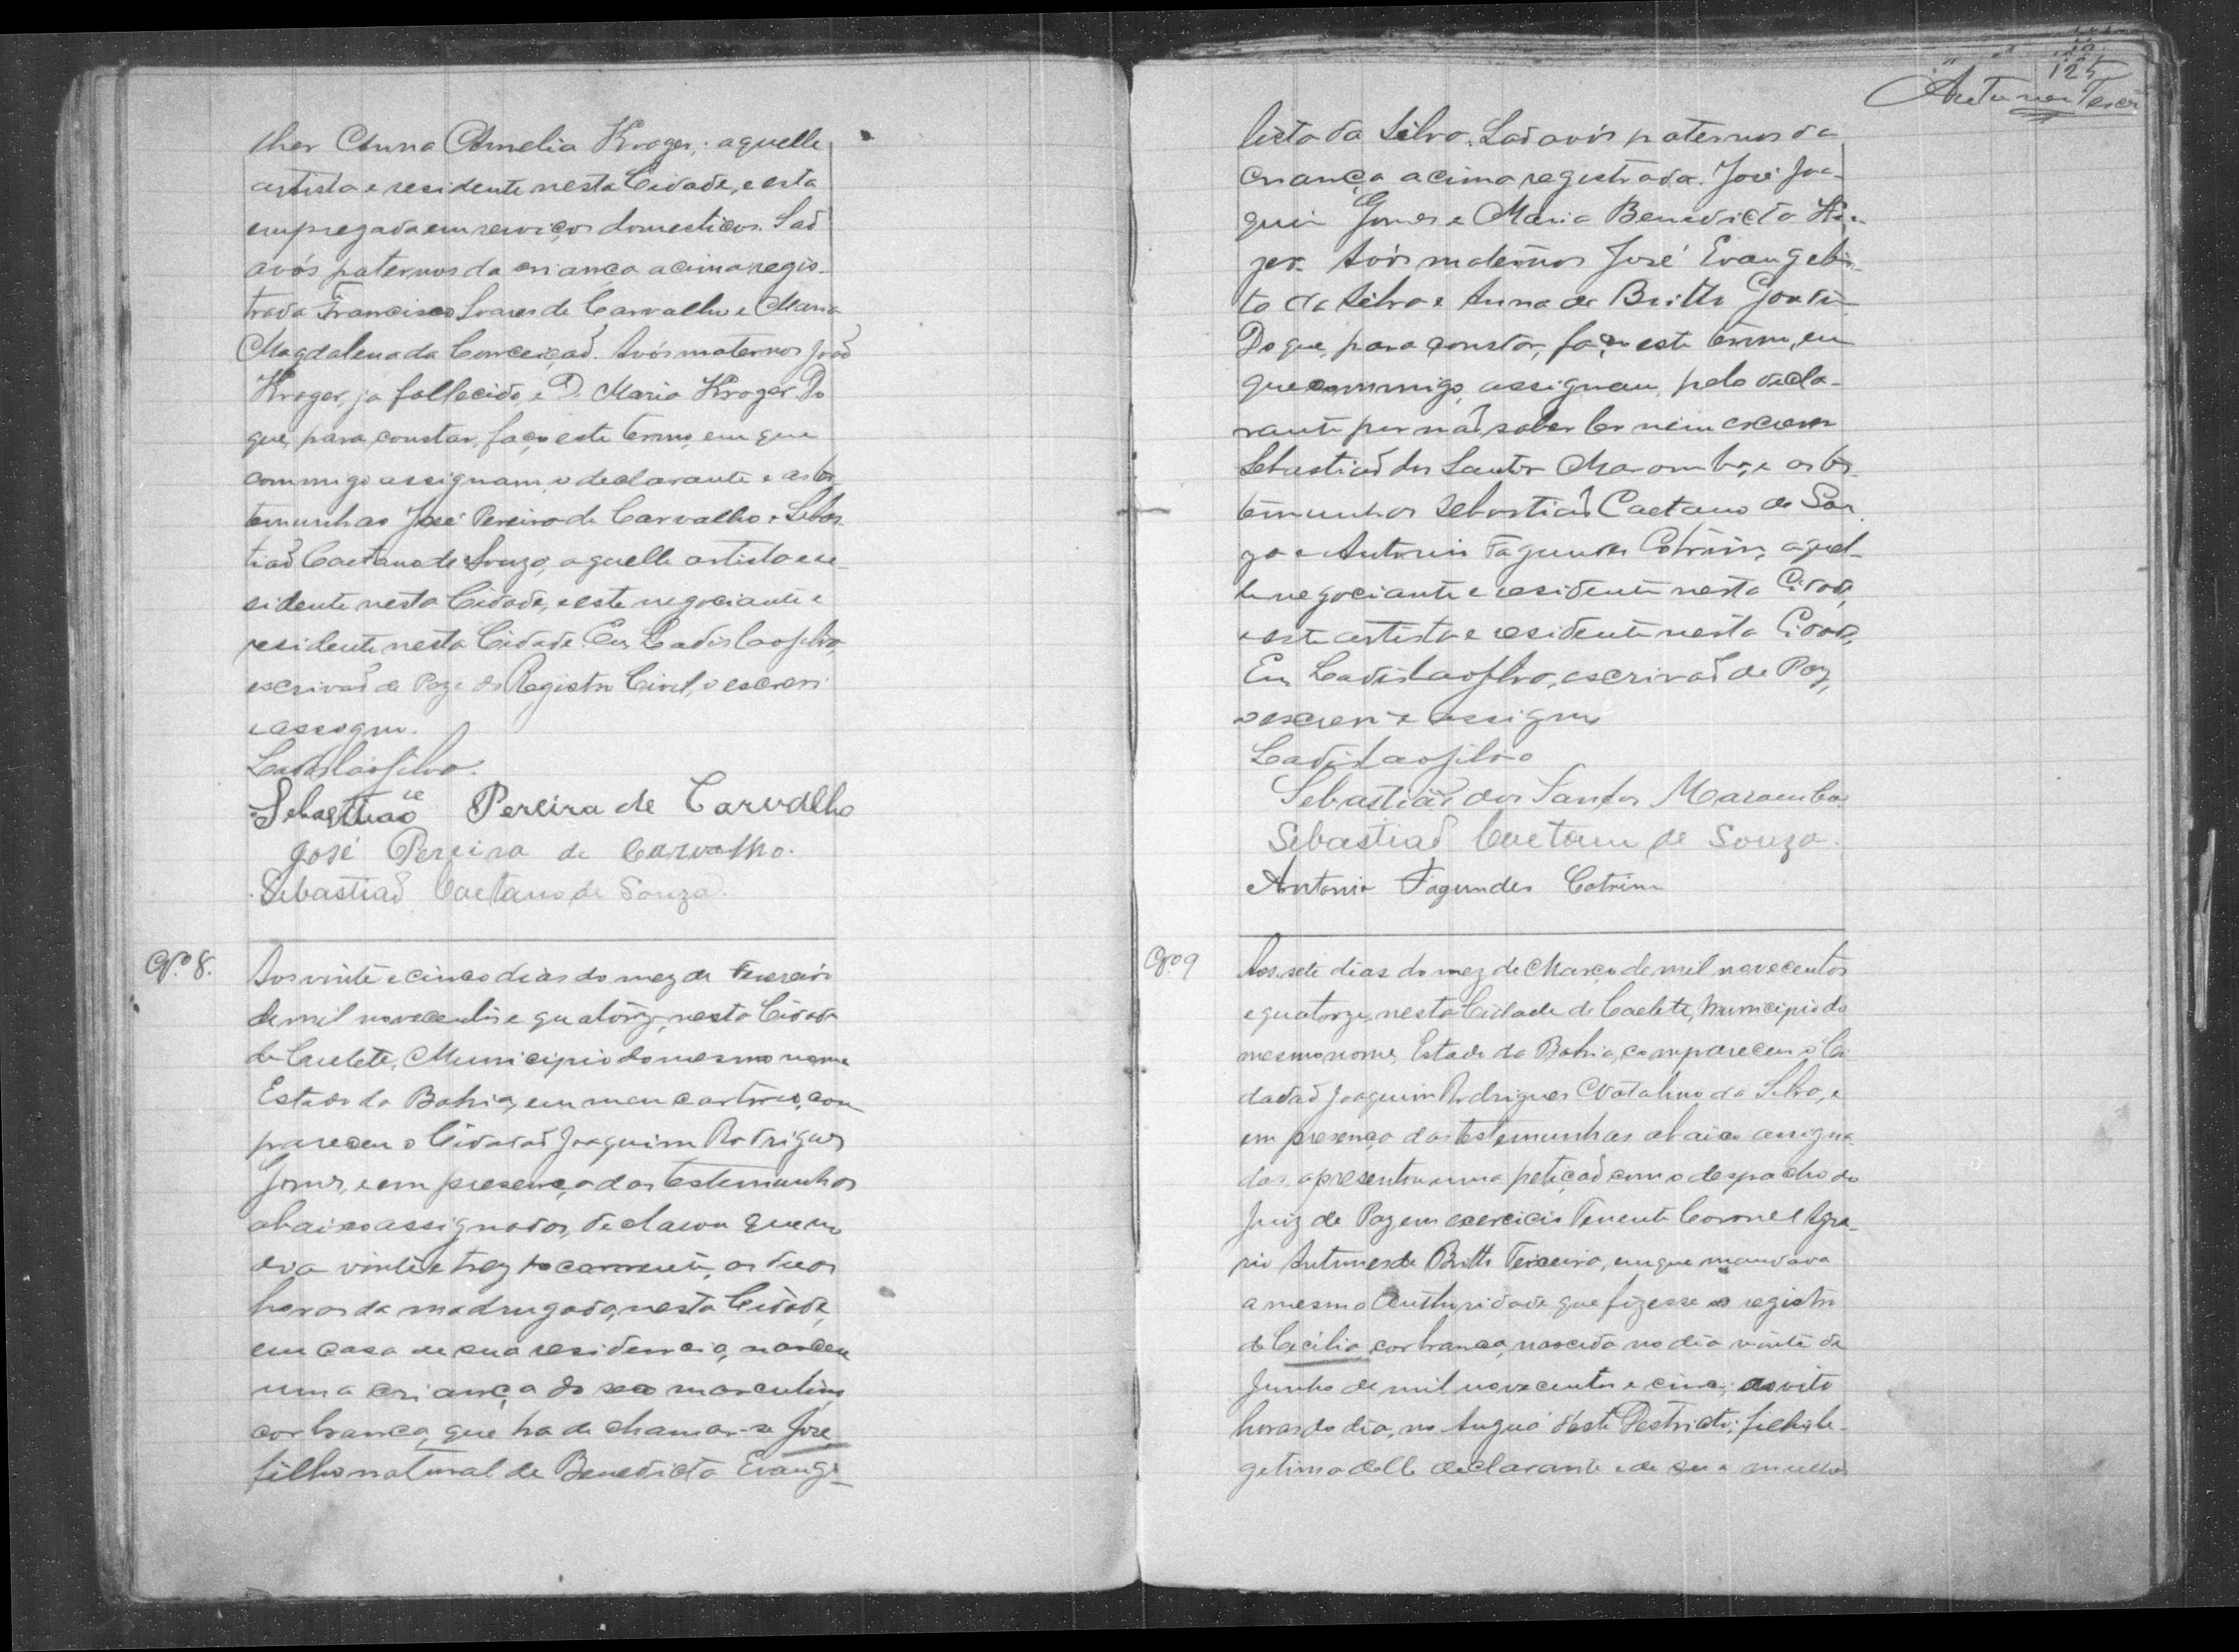 lher Anna Amelia Kroger; aquelle
artista e residente nesta Cidade, e esta
empregada em serviços domesticos. Saõ
avós paternos da criança acima regis-
trada Francisco Soares de Carvalho e Maria
Magdalena da Conceiçaõ. Avós maternos Joaõ
Kroger, ja fallecido, e D. Maria Kroger. Do
que, para constar, faço este termo, em que
commigo assignam, o declarante e as tes-
temunhas José Pereira de Carvalho e Sebas-
tiaõ Caetano de Souza, aquelle artista e re-
sidente nesta Cidade, e este negociante e
residente nesta Cidade. Eu, Ladislao Silva,
escrivaõ de Paz e do Registro Civil, o escrevi
e assigno.
Ladislao Silva.
Sebastiaõ Pereira de Carvalho
José Pereira de Carvalho.
Sebastiaõ Caetano de Souza.
Nº 8.
Aos vinte e cinco dias do mez de Fevereiro
de mil novecentos e quatorze, nesta Cidade
de Caeteté, Municipio do mesmo nome
Estado da Bahia, em meu cartorio, com
pareceu o Cidadaõ Joaquim Rodrigues
Gomes, e em presença das testemunhas
abaixo assignadas, declarou que no
dia vinte e trez do corrente, as duas
horas da madrugada, nesta Cidade,
em casa de sua residencia, nasceu
uma criança do sexo masculino
cor branca, que ha de chamar-se José,
filho natural de Benedicta Evange-
125
Antunes Teixeira
lista da Silva. Saõ avós paternos da
criança acima registrada. José Joa-
quim Gomes e Maria Benedicta
Avós maternos José Evangelis-
ta da Silva e Anna de Britto
Do que, para constar, faço este termo, em
que commigo, assignam, pelo decla-
rante por naõ saber ler nem escrever
Sebastiaõ dos Santos Maromba, e as tes-
temunhas Sebastiaõ Caetano de Sou-
za e Antonio Fagundes Cotrim, aquel-
le negociante e residente nesta Cidade,
e este artista e residente nesta Cidade,
Eu Ladislao Silva, escrivaõ de Paz,
o escrevi e assigno
Ladislao Silva
Sebastiaõ dos Santos Maromba
Sebastiaõ Caetano de Souza.
Antonio Fagundes Cotrim
Nº 9
Aos sete dias do mez de Março de mil novecentos
e quatorze, nesta Cidade de Caeteté, Municipio do
mesmo nome, Estado da Bahia, compareceu o Ci-
dadaõ Joaquim Rodrigues Natalino da Silva, e
em presença das testemunhas abaixo assigna-
das, apresentou uma petiçaõ com o despacho do
Juiz de Paz em exercicio Tenente Coronel Agra-
rio Antunes de Britto Teixeira, em que mandava
a mesma Authoridade que fizesse o registro
de Cecilia, cor branca, nascida no dia vinte de
Junho de mil novecentos e cinco, as oito
horas do dia, no deste Destricto; filha le-
getima delle declarante e de sua mulher